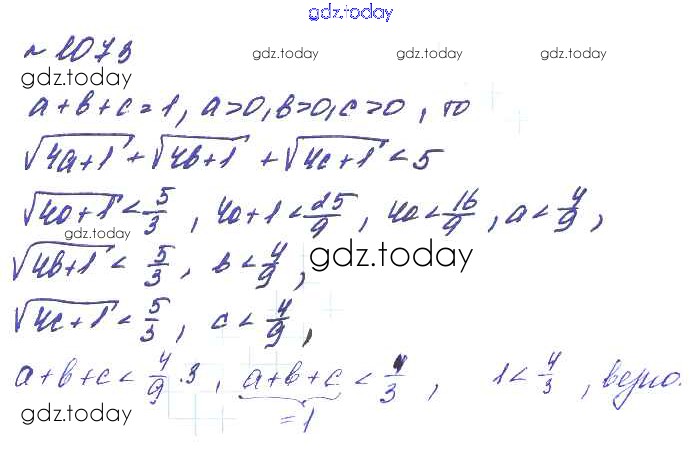 gdz.today
№ 1073
gdz.today gdz.today gdz.today
gdz.today
a+b+c=1, a>0, b>0, c>0, то
√4a+1 + √4b+1 + √4c+1 < 5
√4a+1 < 5/3, 4a+1 < 25/9, 4a < 16/9, a < 4/9,
gdz.today gdz.today
√4b+1 < 5/3, b < 4/9,
gdz.today
√4c+1 < 5/3, c < 4/9,
a+b+c < 4/9 · 3, a+b+c < 4/3, 1 < 4/3, верно.
=1
gdz.today gdz.today gdz.today